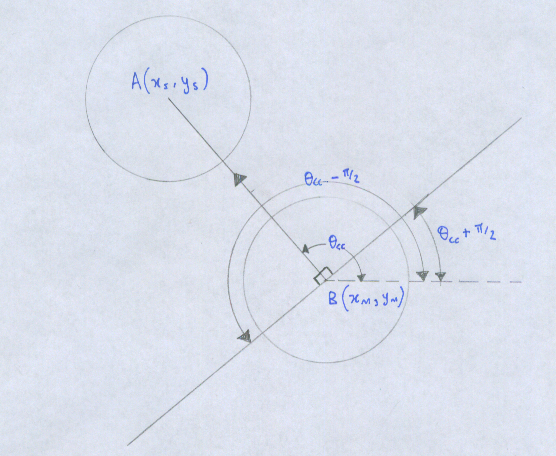 A(xs, ys)
θcc - π/2
θcc
θcc + π/2
B(xM, yM)